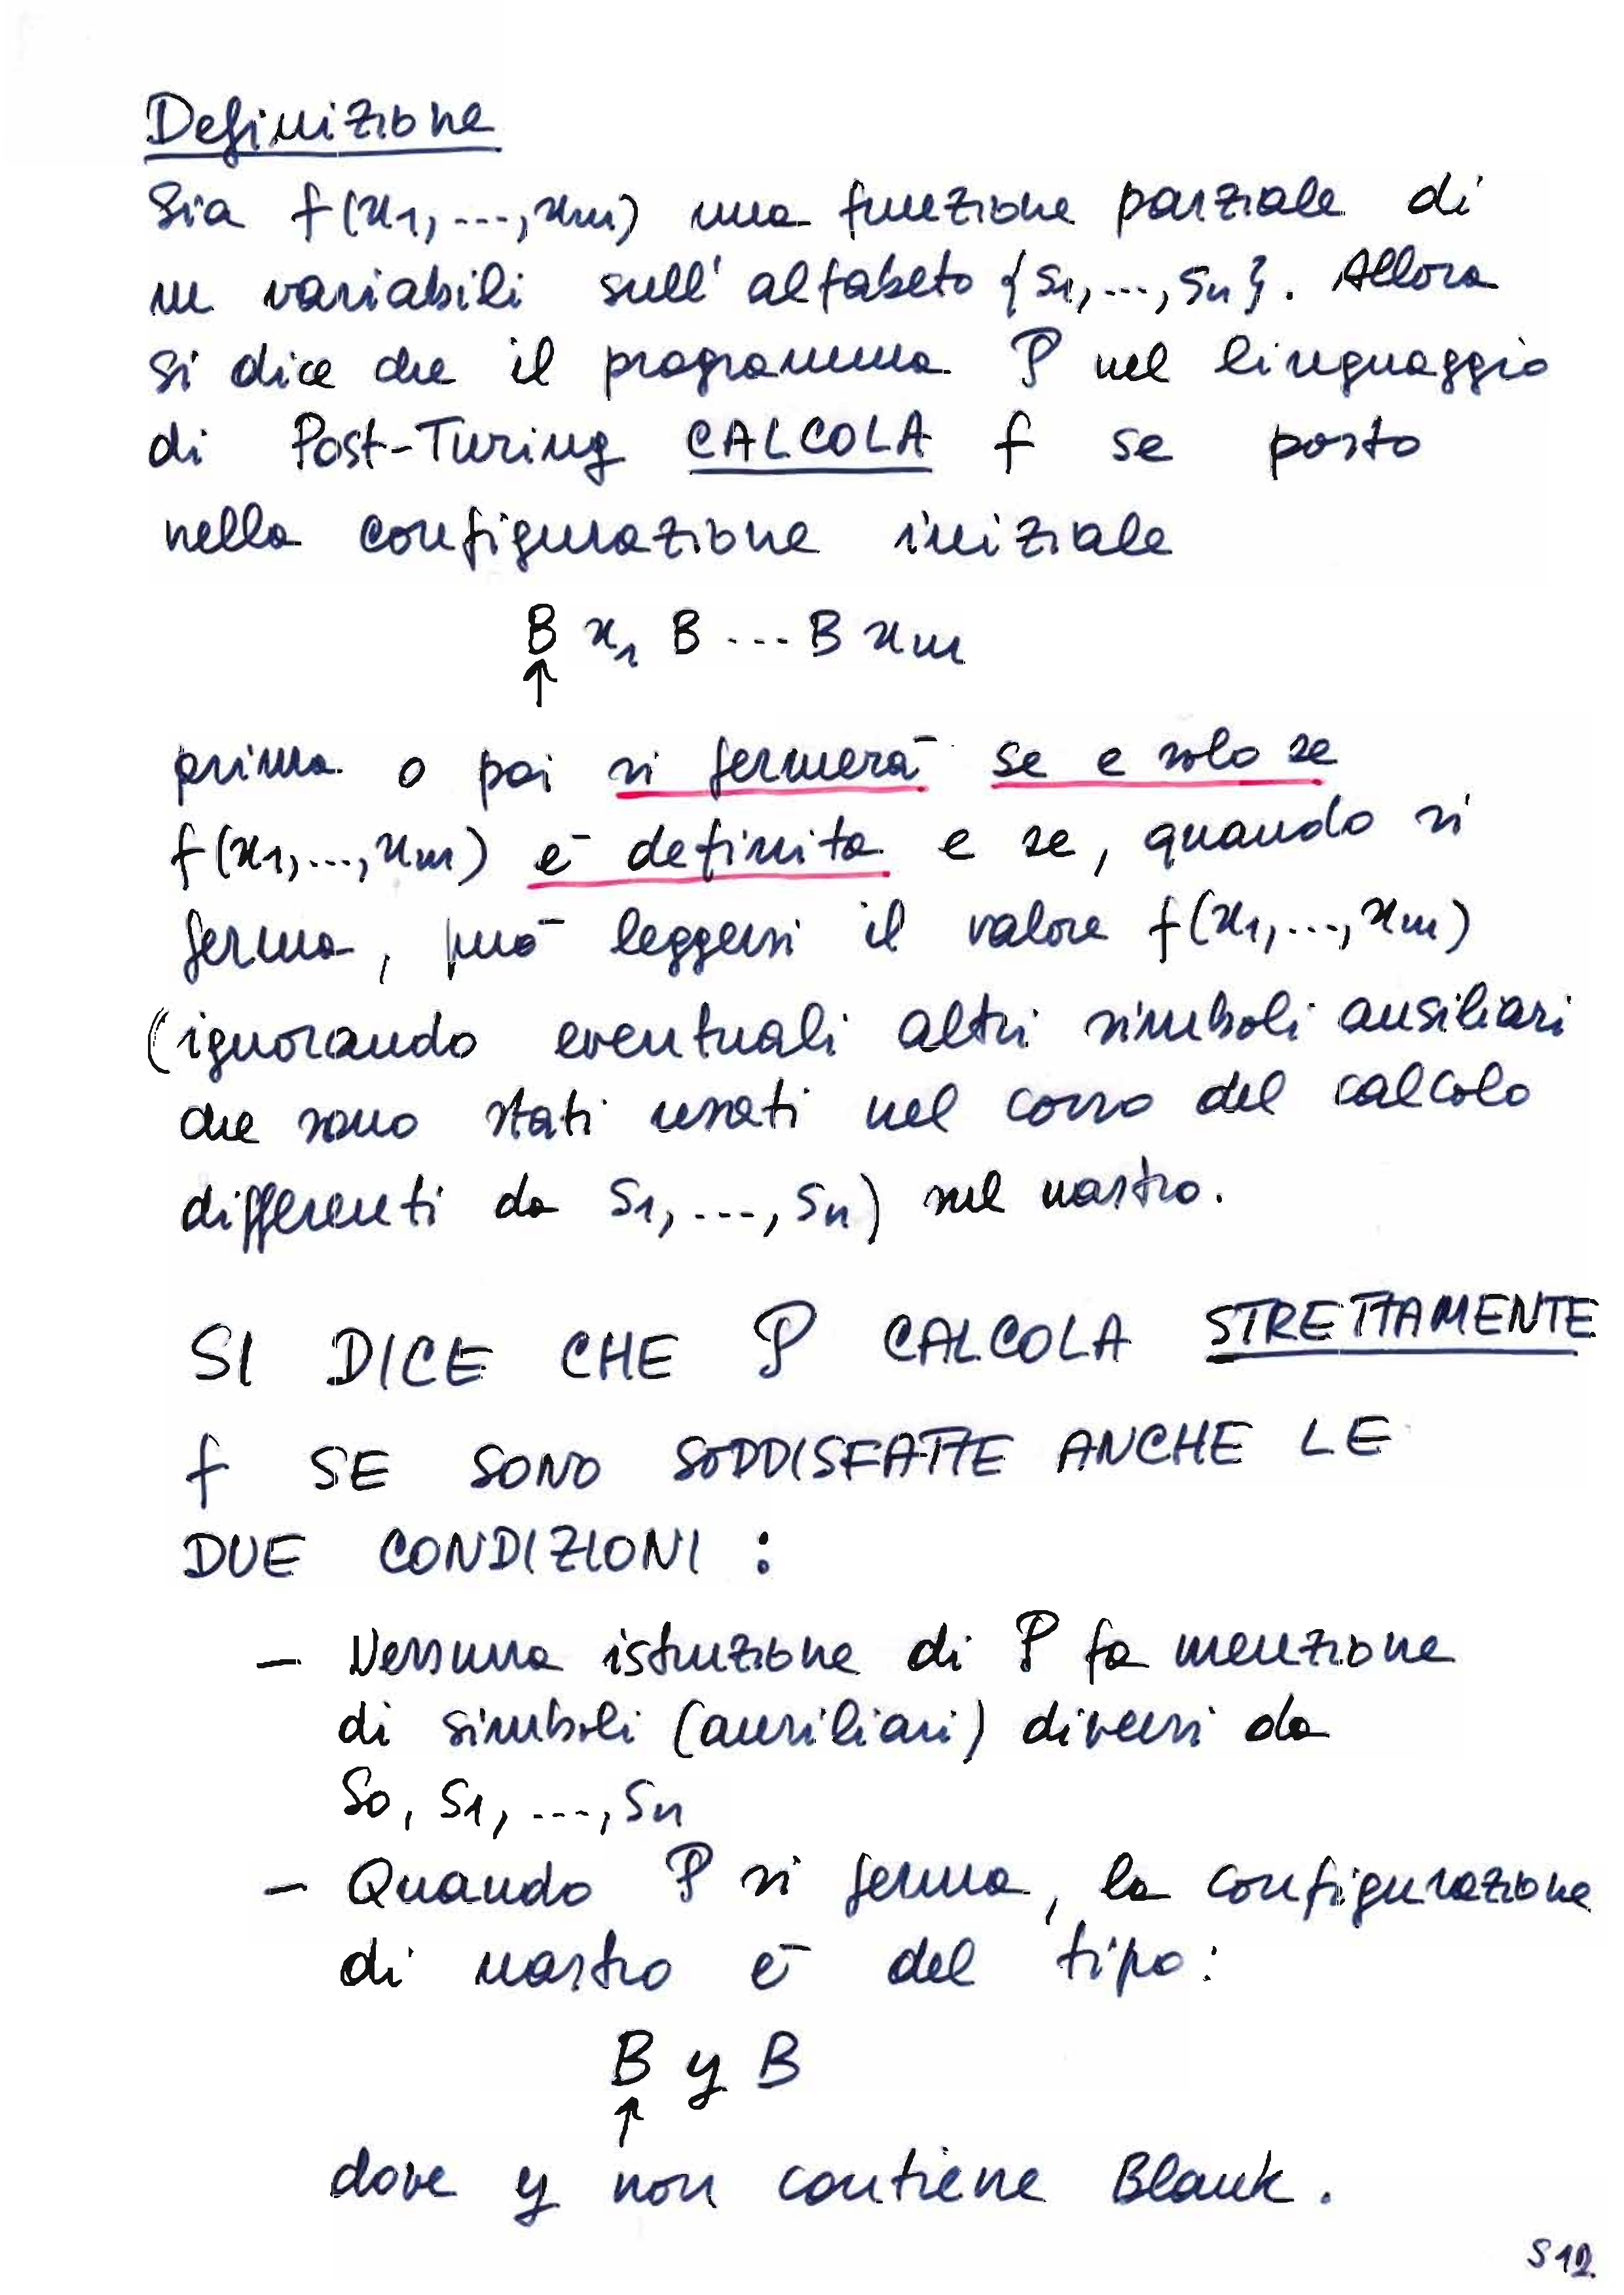 Definizione
Sia f(x1,...,xm) una funzione parziale di
m variabili sull'alfabeto {s1,...,sn}. Allora
si dice che il programma P nel linguaggio
di Post-Turing CALCOLA f se posto
nella configurazione iniziale
B x1 B ... B xm
↑
prima o poi si fermerà se e solo se
f(x1,...,xm) è definita e se, quando si
ferma, può leggersi il valore f(x1,...,xm)
(ignorando eventuali altri simboli ausiliari
che sono stati usati nel corso del calcolo
differenti da s1,...,sn) sul nastro.
SI DICE CHE P CALCOLA STRETTAMENTE
f SE SONO SODDISFATTE ANCHE LE
DUE CONDIZIONI :
- Nessuna istruzione di P fa menzione
di simboli (ausiliari) diversi da
s0, s1, ..., sn
- Quando P si ferma, la configurazione
di nastro è del tipo:
B y B
↑
dove y non contiene Blank.